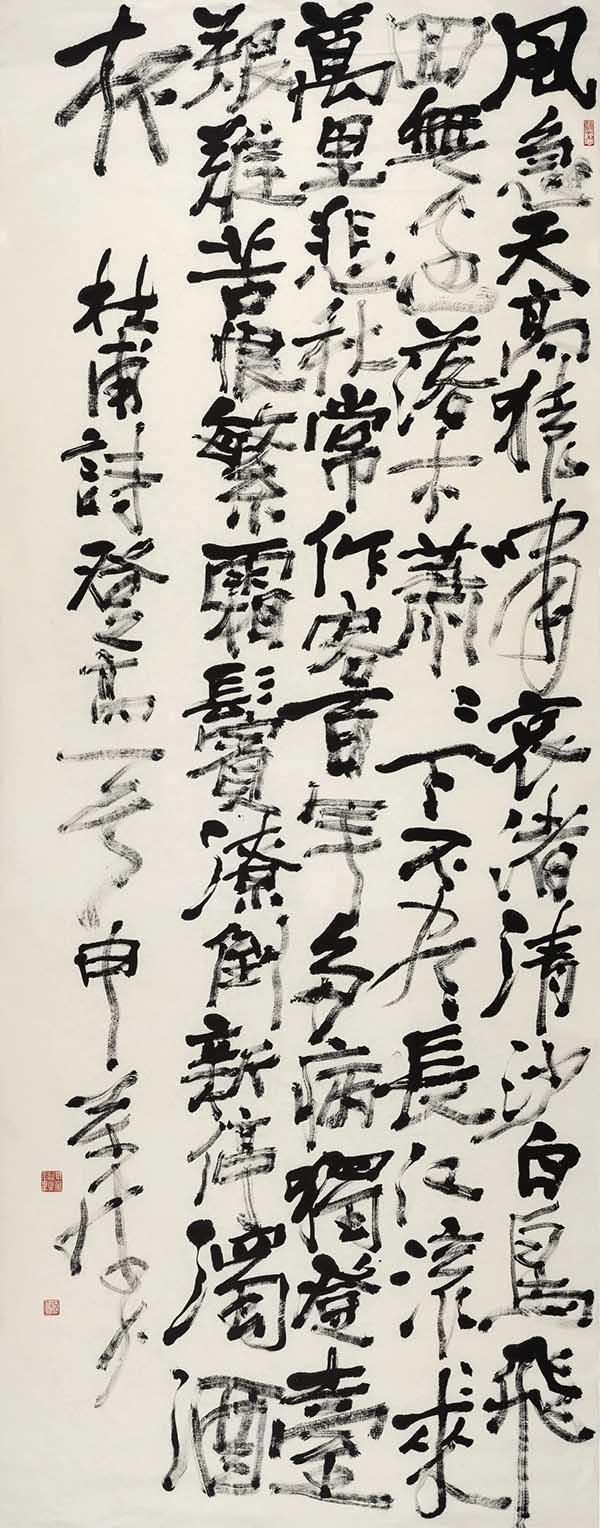 風急天高猿嘯哀渚清沙白鳥飛
回無邊落木蕭〻下不尽長江滚〻來
萬里悲秋常作客百年多病獨登臺
艱難苦恨繁霜鬢潦倒新停濁酒
杯
杜甫詩登高一首申萬勝书